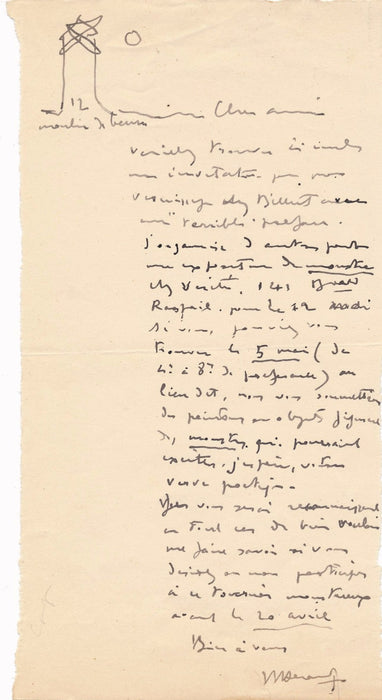 12
moulin de beurre
Cher ami
veuillez trouver ci inclus
une invitation pour mon
vernissage chez Billiet avec
une "terrible" préface.
J'organise d'autre part
une exposition de monstres
chez Vérité, 141 Bvard
Raspail. pour le 12 mai
Si vous pouviez vous
trouver le 5 mai (de
4h à 8h de préférence) au
lieu dit, nous vous soumettrions
des peintures ou objets figurant
des monstres qui pourraient
exciter, j'espère, votre
verve poétique.
vous serai reconnaissant
en tout cas de bien vouloir
me faire savoir si vous
désirez ou non participer
à ce tournoi monstrueux
avant le 20 avril
Bien à vous